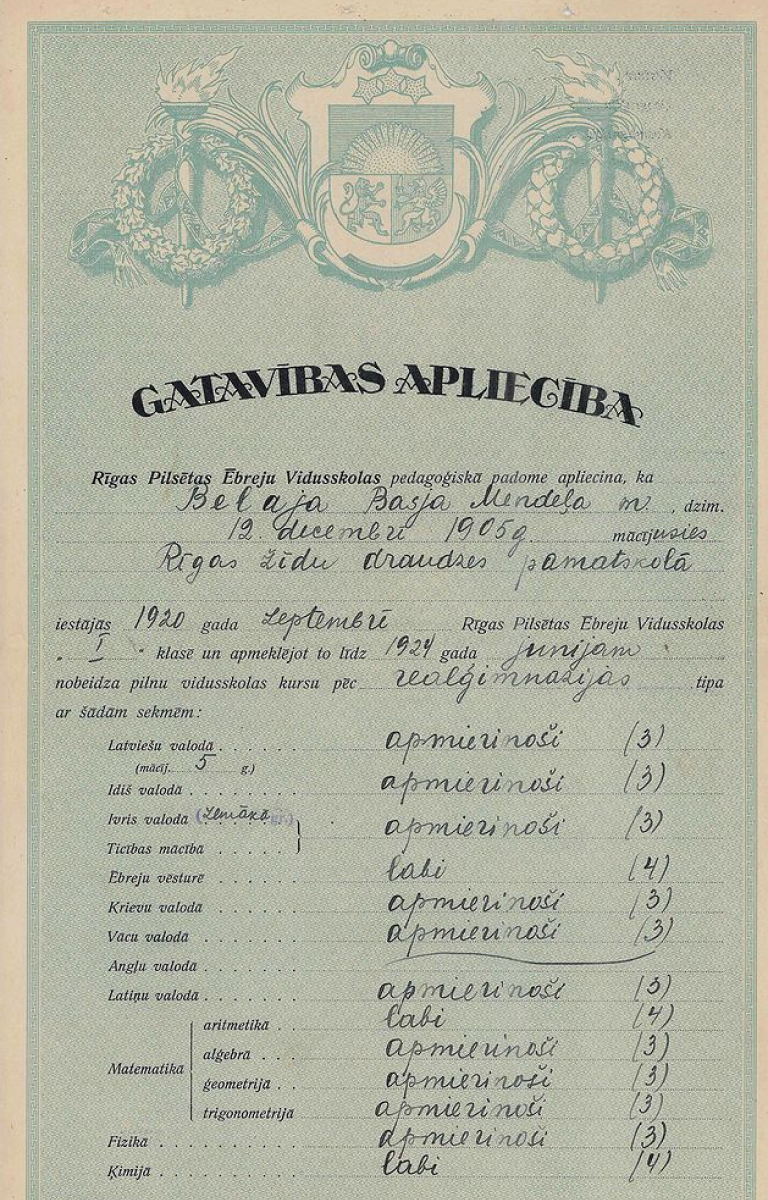 GATAVĪBAS APLIECĪBA
Rīgas Pilsētas Ebreju Vidusskolas pedagoģiskā padome apliecina, ka
Belaja Basja Mendeļa m. , dzim.
12. decembrī 1905g. mācījusies
Rīgas žīdu draudzes pamatskolā
iestājās 1920 gada septembrī Rīgas Pilsētas Ebreju Vidusskolas
„ I “ klasē un apmeklējot to līdz 1924 gada junijam
nobeidza pilnu vidusskolas kursu pēc realģimnazijas tipa
ar šādām sekmēm:
Latviešu valodā . . . . . . apmierinoši (3)
(mācīj. 5 g.)
Idiš valodā . . . . . . . . apmierinoši (3)
Ivris valodā (zemākā gr.)
apmierinoši (3)
Ticības mācībā . . . . . .
Ebreju vēsturē . . . . . . labi (4)
Krievu valodā . . . . . . apmierinoši (3)
Vācu valodā . . . . . . . apmierinoši (3)
Angļu valodā . . . . . . .
Latiņu valodā . . . . . . . apmierinoši (3)
aritmetikā . . labi (4)
algebrā . . . apmierinoši (3)
Matematikā
ģeometrijā . . apmierinoši (3)
trigonometrijā apmierinoši (3)
Fizikā . . . . . . . . . . apmierinoši (3)
Ķīmijā . . . . . . . . . . labi (4)